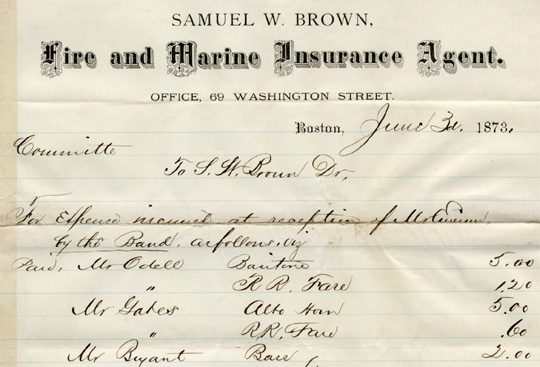 SAMUEL W. BROWN,
Fire and Marine Insurance Agent.
OFFICE, 69 WASHINGTON STREET.
Boston, June 3d. 1873.
Committe
To S. W. Brown Dr,
For Expense incurred at reception of
by the Band. as follows. viz
Paid, Mr Odell Baritone 5.00
" R R. Fare 1.20
Mr Gates Alto Horn 5.00
" R.R. Fare .60
Mr Bryant Bass 2.00